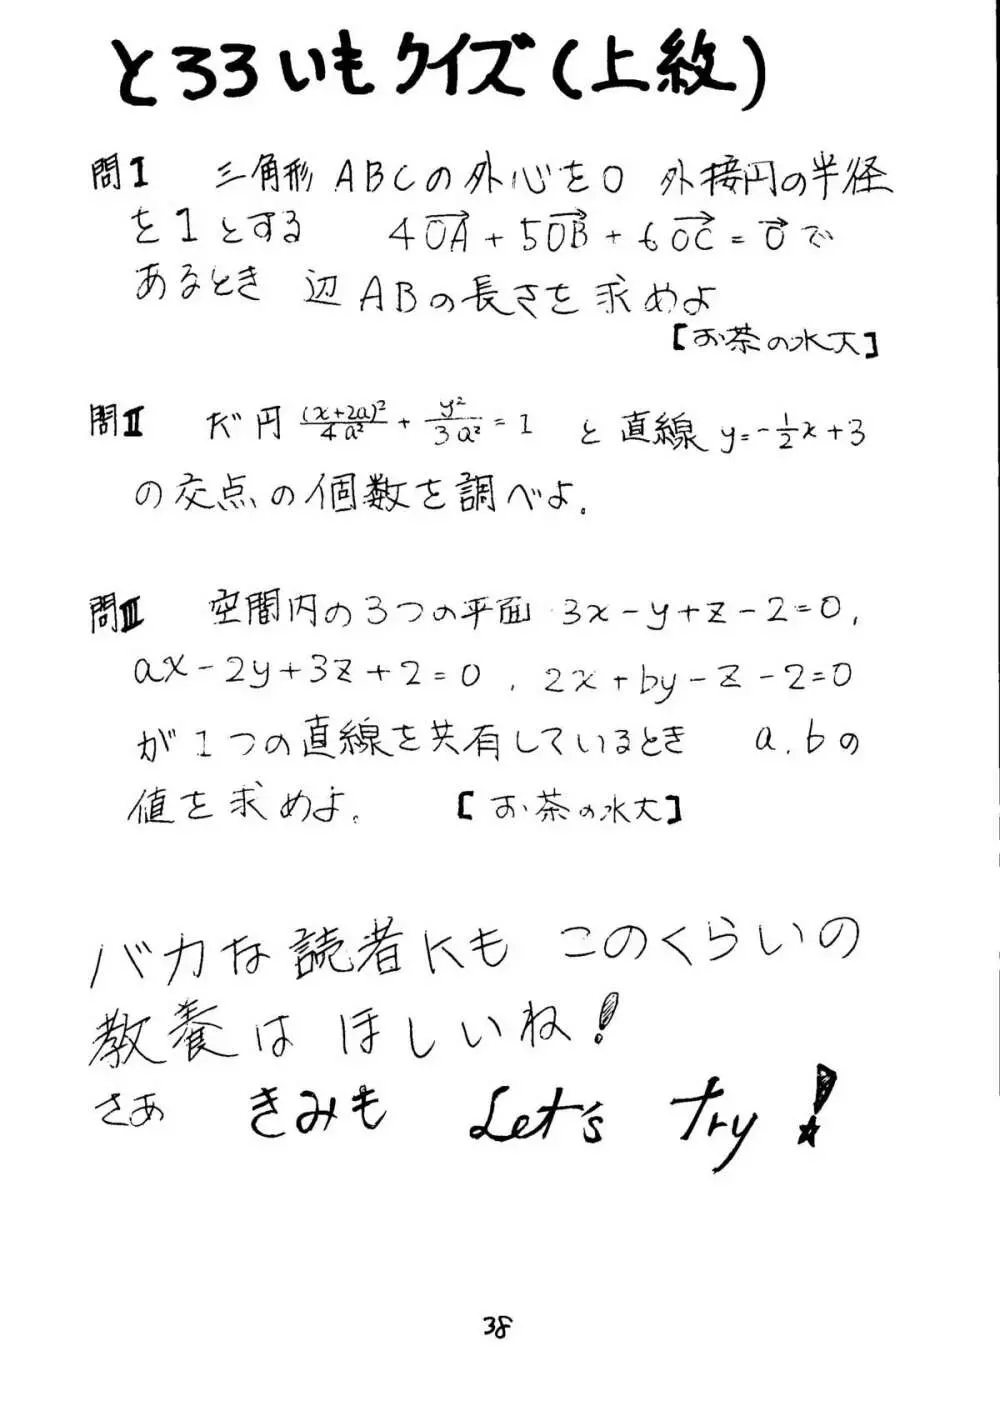 とろろいもクイズ(上紋)
問I 三角形ABCの外心をO 外接円の半径
を1とする 4OA→ + 5OB→ + 6OC→ = 0→ で
あるとき 辺ABの長さを求めよ
【お茶の水大】
問II だ円 (x+2a)²/4a² + y²/3a² = 1 と直線 y=-1/2x+3
の交点の個数を調べよ.
問III 空間内の3つの平面 3x-y+z-2=0,
ax-2y+3z+2=0, 2x+by-z-2=0
が1つの直線を共有しているとき a.bの
値を求めよ.【お茶の水大】
バカな読者にも このくらいの
教養は ほしいね!
さあ きみも Let's try!
38